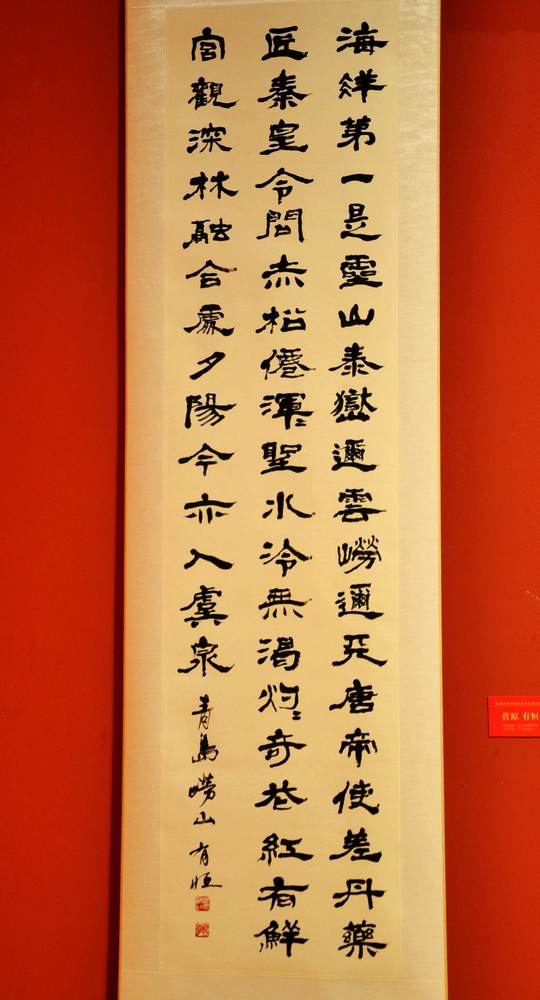 海洋第一是靈山泰嶽邇雲嶗邇天唐帝使差丹藥
匠秦皇令問赤松僊渾〻聖水冷無渴灼〻奇花紅有鮮
宮觀深林融合處夕陽今亦入虞泉 青島嶗山 有恒
菅原 有恒